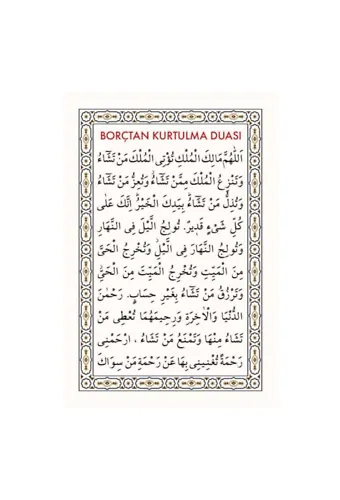 BORÇTAN KURTULMA DUASI
اَللّٰهُمَّ مَالِكَ الْمُلْكِ تُؤْتِى الْمُلْكَ مَنْ تَشَٓاءُ
وَتَنْزِعُ الْمُلْكَ مِمَّنْ تَشَٓاءُ وَتُعِزُّ مَنْ تَشَٓاءُ
وَتُذِلُّ مَنْ تَشَٓاءُ بِيَدِكَ الْخَيْرُ اِنَّكَ عَلٰى
كُلِّ شَيْءٍ قَدِيرٌ. تُولِجُ الَّيْلَ فِى النَّهَارِ
وَتُولِجُ النَّهَارَ فِى الَّيْلِ وَتُخْرِجُ الْحَىَّ
مِنَ الْمَيِّتِ وَتُخْرِجُ الْمَيِّتَ مِنَ الْحَىِّ
وَتَرْزُقُ مَنْ تَشَٓاءُ بِغَيْرِ حِسَابٍ. رَحْمٰنَ
الدُّنْيَا وَالْاٰخِرَةِ وَرَحِيمَهُمَا تُعْطِى مَنْ
تَشَاءُ مِنْهَا وَتَمْنَعُ مَنْ تَشَاءُ ، ارْحَمْنِى
رَحْمَةً تُغْنِينِى بِهَا عَنْ رَحْمَةِ مَنْ سِوَاكَ